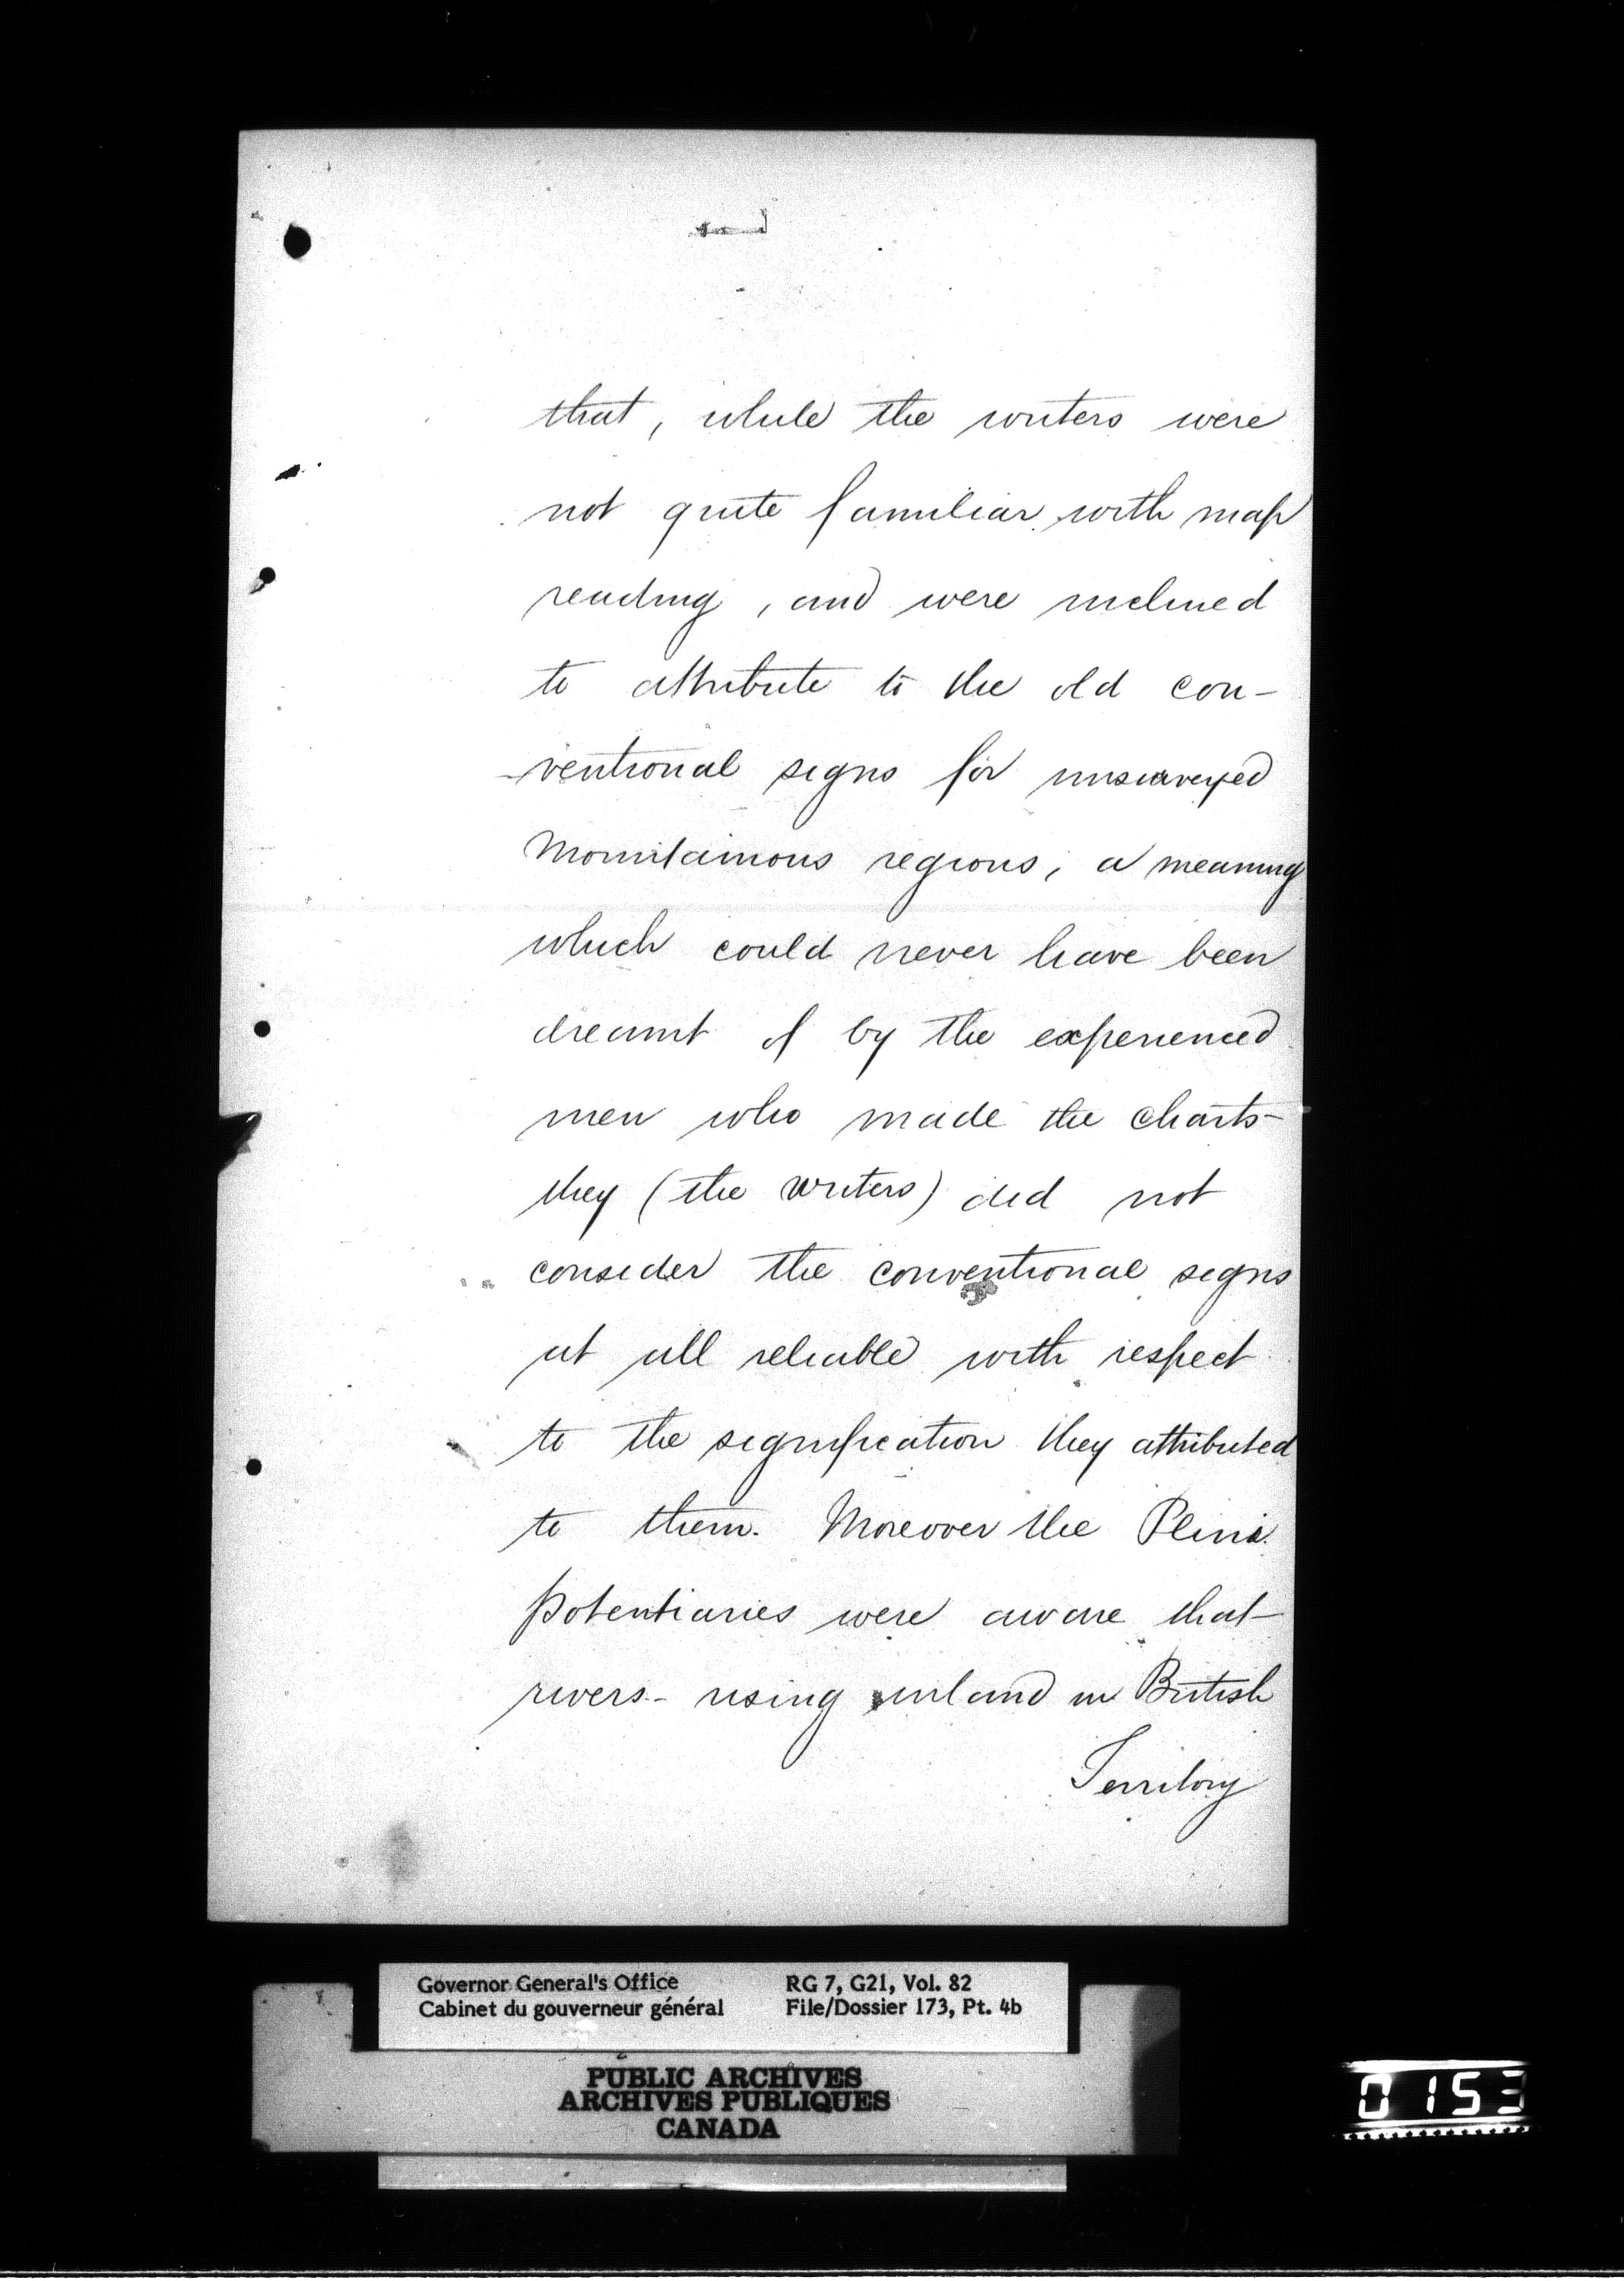 that, while the writers were
not quite familiar with map
reading, and were inclined
to attribute to the old con-
-ventional signs for unsurveyed
Mountainous regions, a meaning
which could never have been
dreamt of by the experienced
men who made the charts-
they (the writers) did not
consider the conventional signs
at all reliable with respect
to the signification they attributed
to them. Moreover the Pleni
potentiaries were aware that
rivers - rising inland in British
Territory
Governor General's Office
Cabinet du gouverneur général
RG 7, G21, Vol. 82
File/Dossier 173, Pt. 4b
PUBLIC ARCHIVES
ARCHIVES PUBLIQUES
CANADA
0153